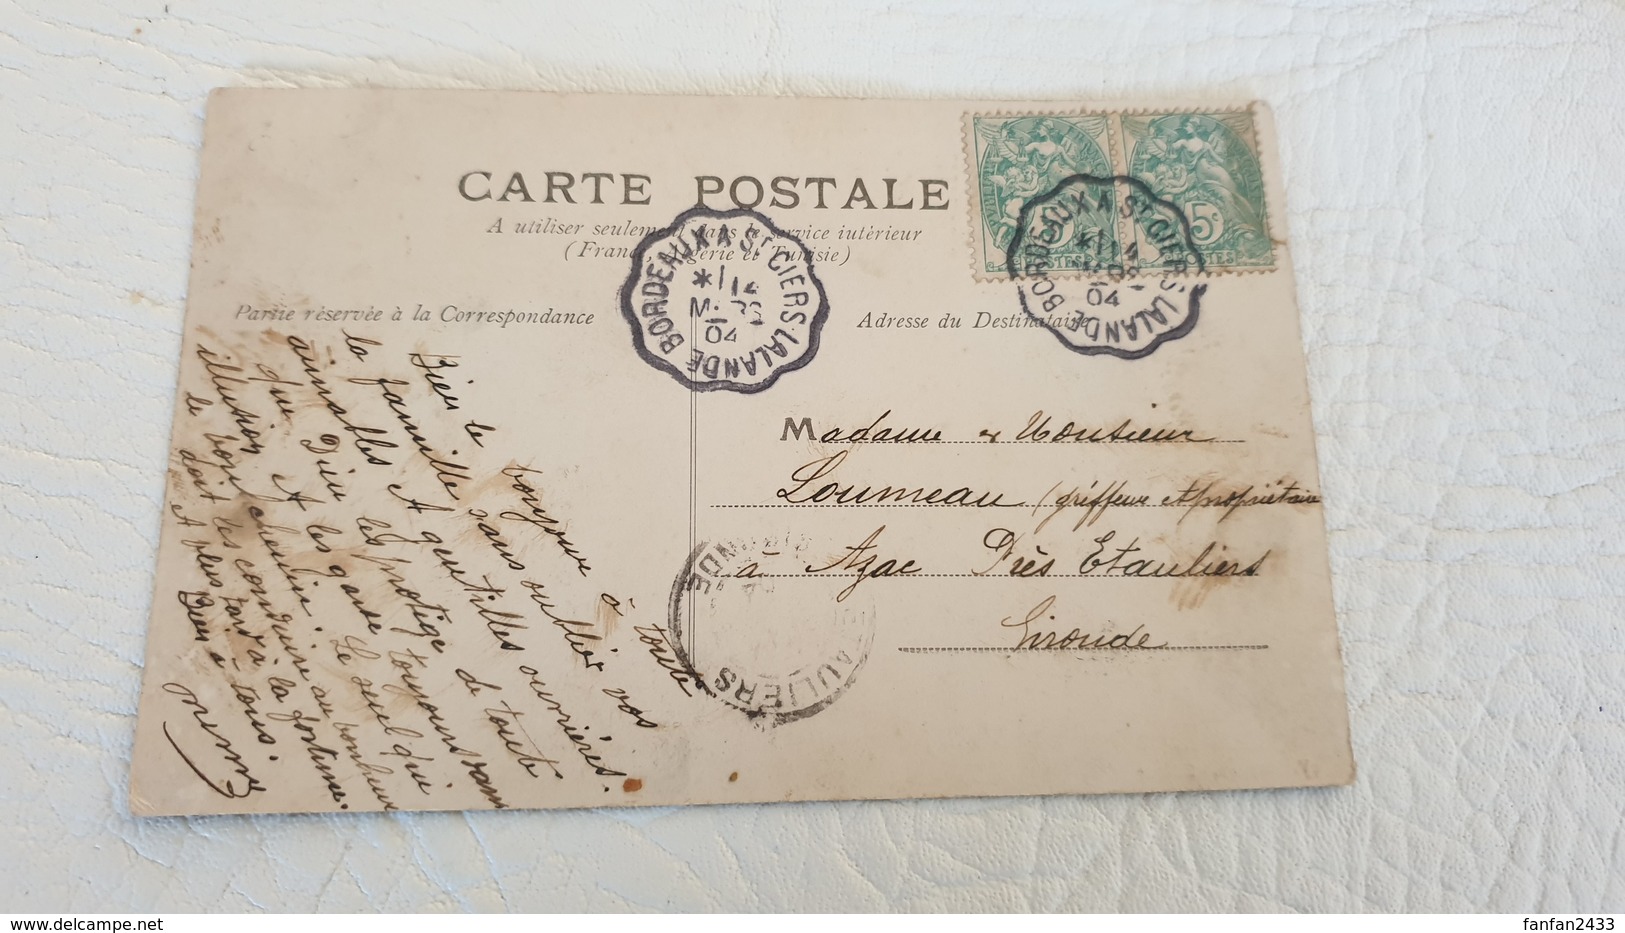 CARTE POSTALE
A utiliser seulement dans le service intérieur
(France, Algérie et Tunisie)
Partie réservée à la Correspondance
Adresse du Destinataire
BORDEAUX A ST CIERS-LALANDE
14
MARS
04
BORDEAUX A ST CIERS-LALANDE
04
5c
5c
POSTES
POSTES
Bien le bonjour à toute
la famille sans oublier vos
aimables et gentilles ouvrières.
que Dieu les protège de tout
et les garde toujours sans
illusion. Le seul qui
le bon chemin.
doit les conduire au bonheur
et plus tard à la fortune.
Bien à vous.
Madame et Monsieur
Loumeau (greffeur et propriétaire
à Azac Près Etauliers
Gironde
AULIERS
GIRONDE
delcampe.net
fanfan2433